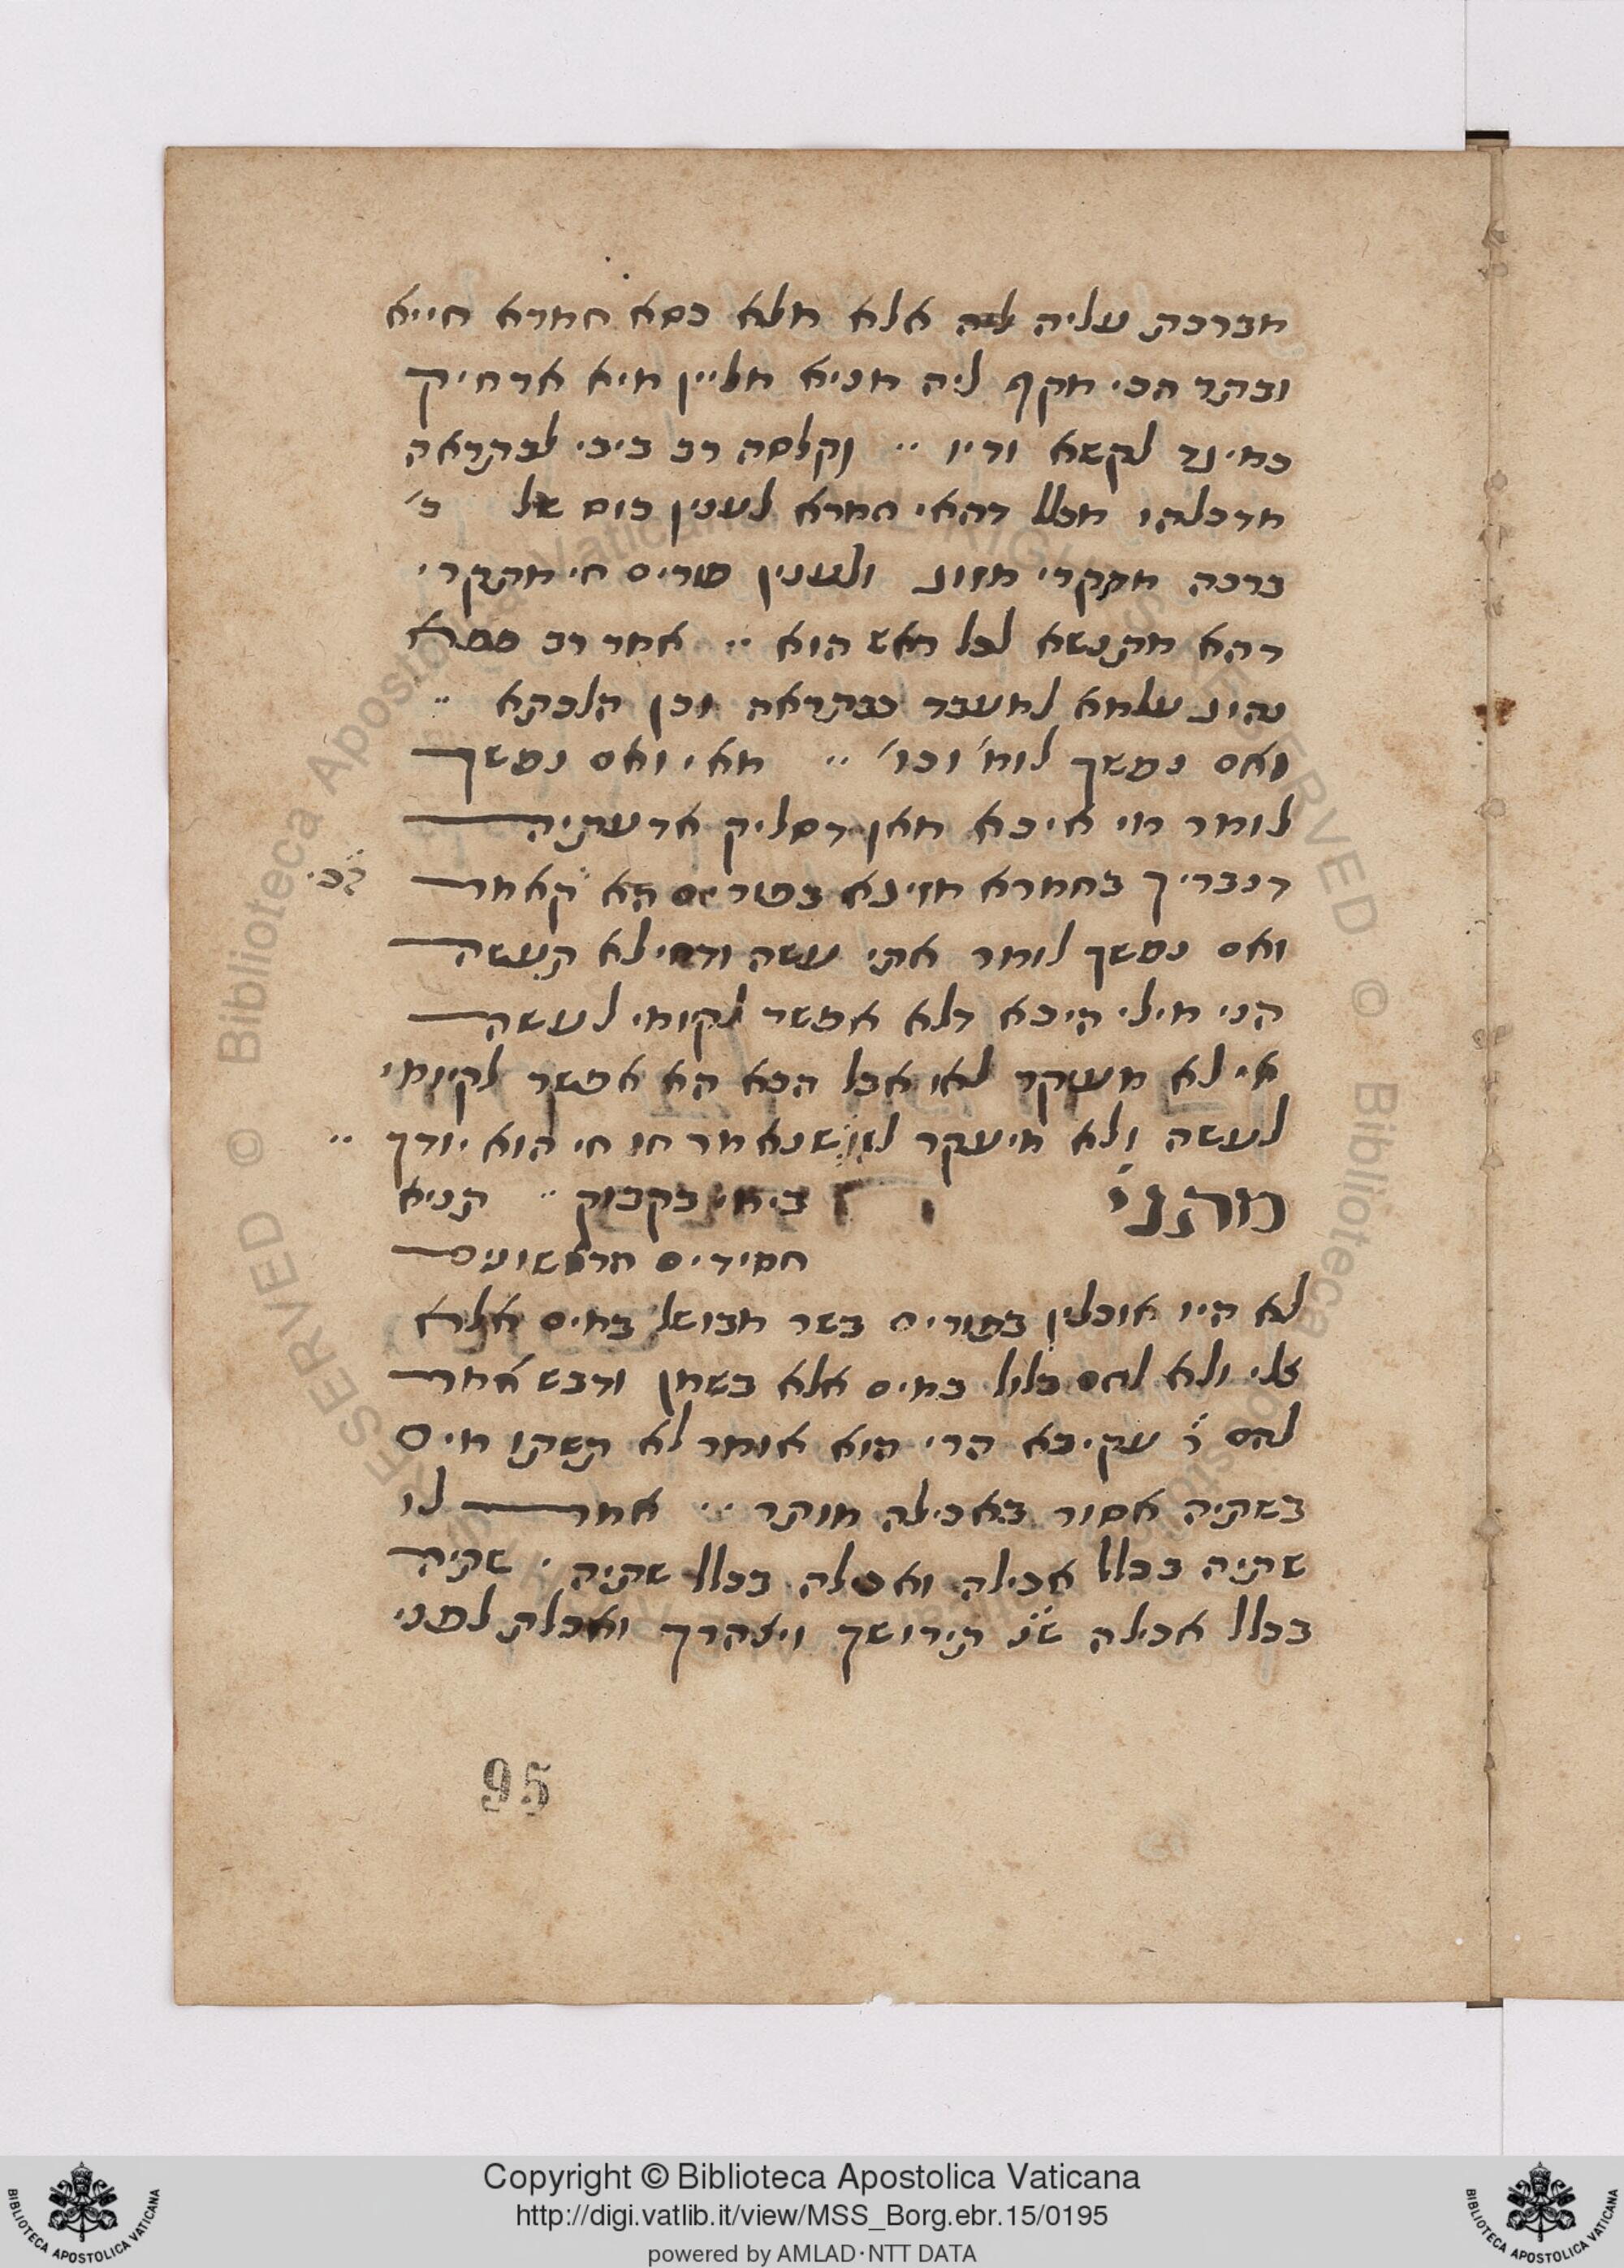 מברכת עליה ליה אלא מלא כסא חמרא חייא
ובתר הכי תקיף ליה מניא מליין מיא ארחיק
כמינד לקשא ודיו ׃ וקלסה רב ביבי לבתראה
מדכלהו מכלל דהאי חמרא לענין כוס של כ׳
ברכה מקרי מזוג ולענין פורים חי מתקרי
דהא מתנשא לכל ראש הוא ׃ אמר רב פפא
נהוג עלמא למעבד כבתראה וכן הלכתא ׃
ואם נמשך לומ׳ וכו׳ ׃ מאי ואם נמשך
לומר חי איכא מאן דסליק אדעתיה
דנבריך בחמרא מזיגא בפורים הא קאמר
ואם נמשך לומר אתי עשה ודחי לא תעשה
הני מילי היכא דלא אפשר לקיומי לעשה
אי לא מעקר לאו אבל הכא הא אפשר לקיומי
לעשה ולא מיעקר לאו שנאמר חו חי הוא יודך ׃
מתני׳ בימי בקבוק ׃ תניא
חסידים הראשונים
לא היו אוכלין בפורים בשר מבושל במים אלא
צלי ולא לחם בלול במים אלא בשמן ודבש אמר
להם ר׳ עקיבא הרי הוא אומר לא תשתו מים
בשתיה אסור באכילה מותר ׃ אמר לו
שתיה בכלל אכילה ואכילה בכלל שתיה · שתיה
בכלל אכילה שנ׳ תירושך ויצהרך ואכלת לפני
95
Copyright © Biblioteca Apostolica Vaticana
http://digi.vatlib.it/view/MSS_Borg.ebr.15/0195
powered by AMLAD·NTT DATA